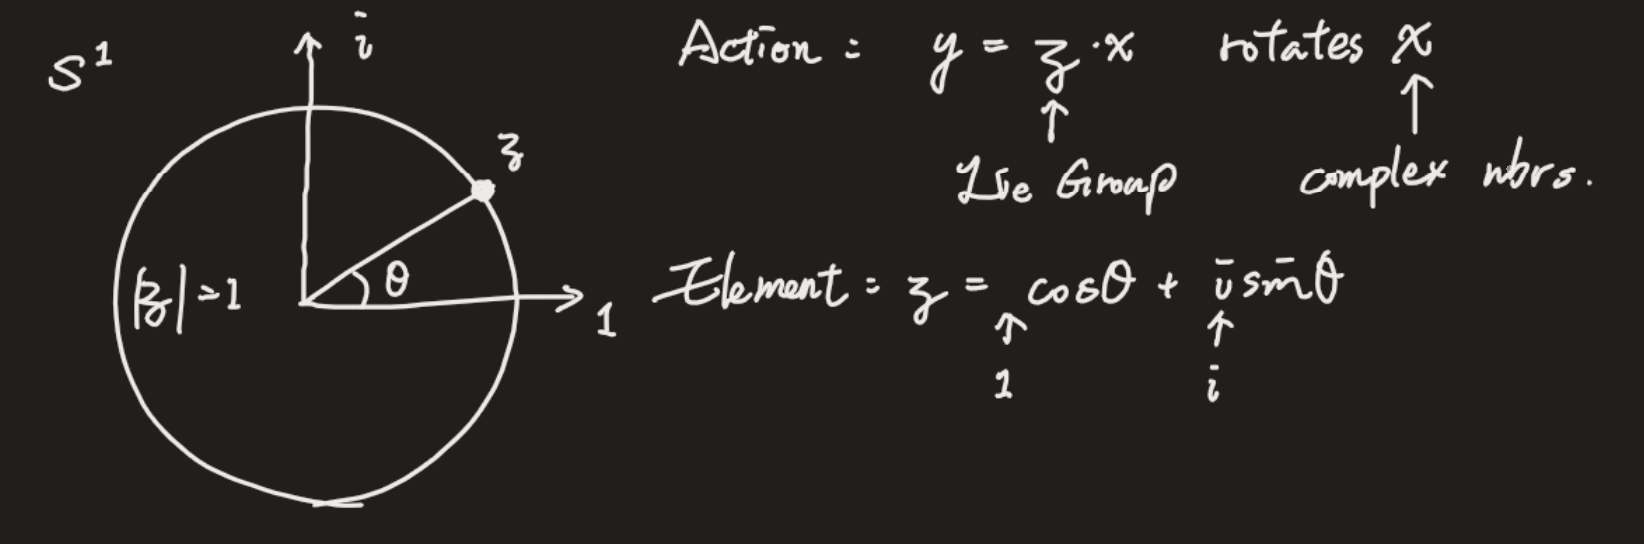 S¹
i
z
|z| = 1
θ
1
Action: y = z · x rotates x
↑ ↑
Lie Group complex nbrs.
Element: z = cosθ + i sinθ
↑ ↑
1 i